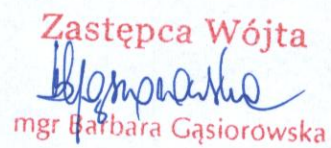 Zastępca Wójta
mgr Barbara Gąsiorowska